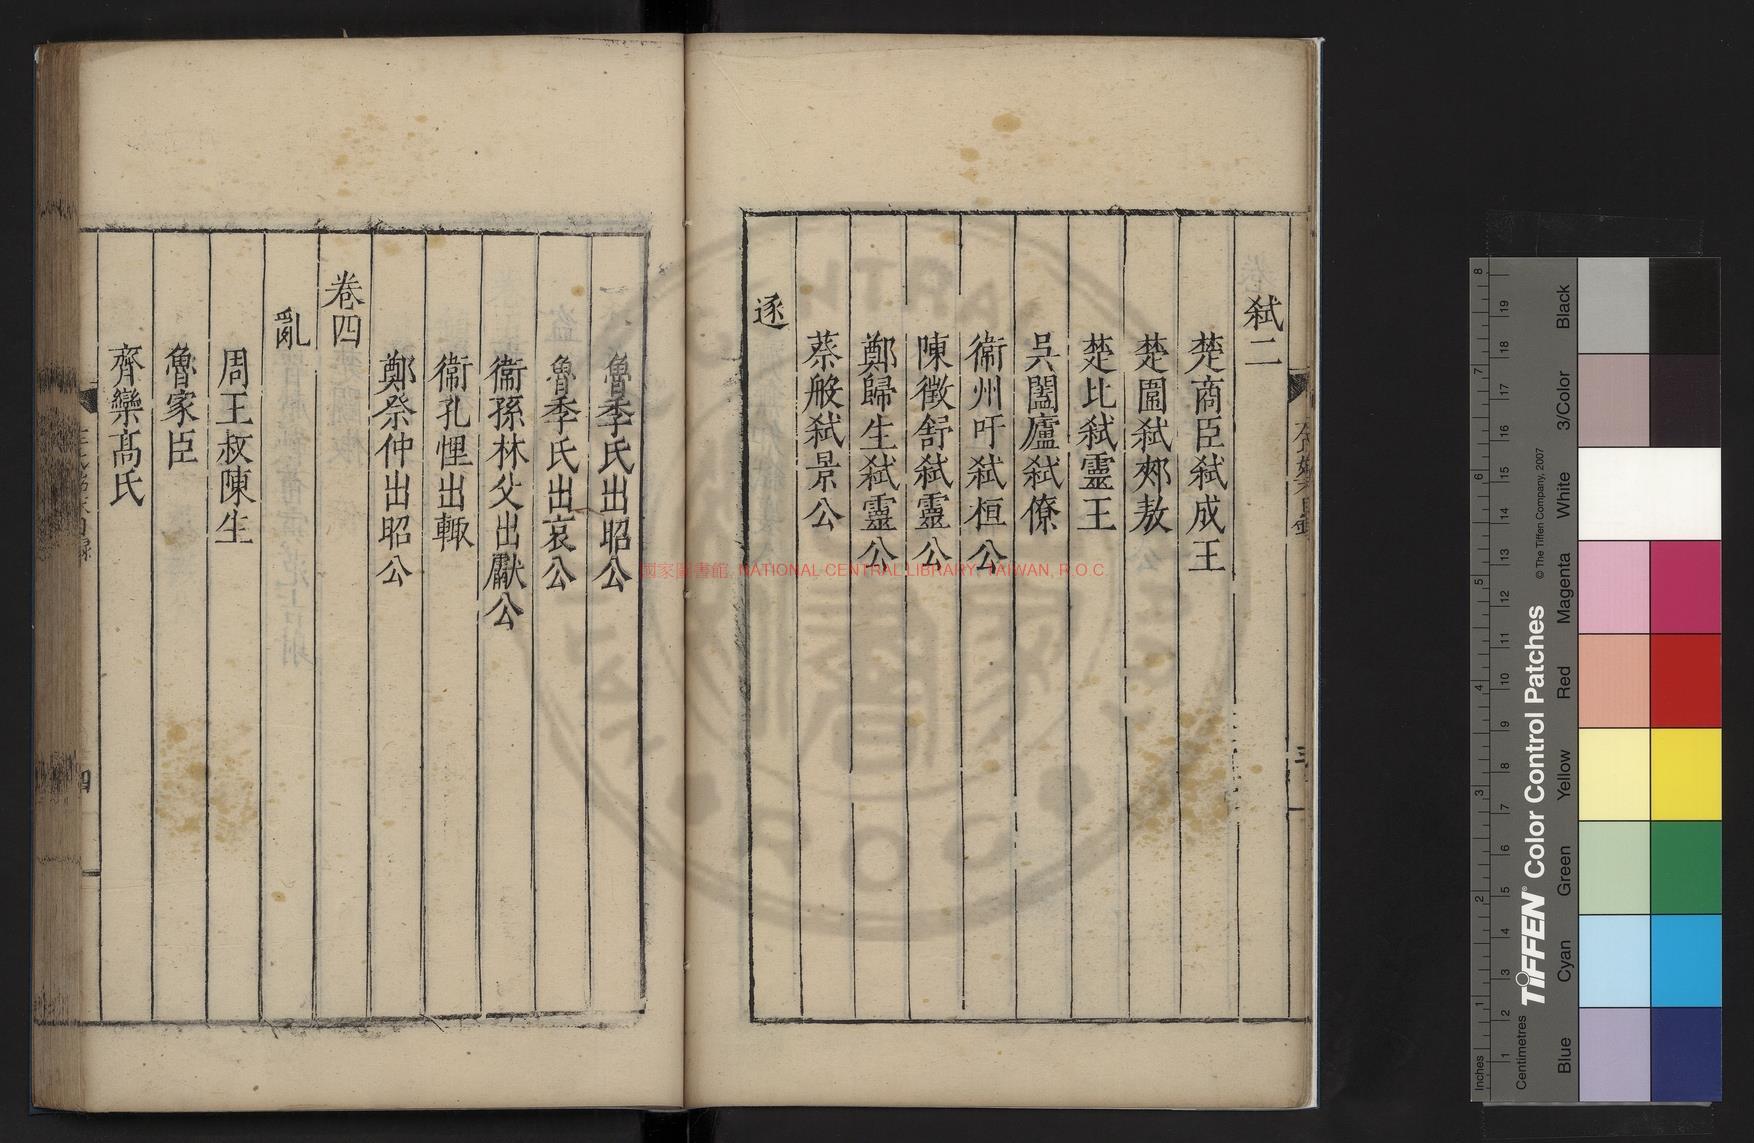 弑二
楚商臣弑成王
楚圍弑郟敖
楚比弑靈王
吳闔廬弑僚
衞州吁弑桓公
陳徵舒弑靈公
鄭歸生弑靈公
蔡般弑景公
逐
魯季氏出昭公
魯季氏出哀公
衞孫林父出獻公
衞孔悝出輙
鄭祭仲出昭公
卷四
亂
周王叔陳生
魯家臣
齊欒高氏
四
國家圖書館, NATIONAL CENTRAL LIBRARY, TAIWAN, R.O.C
Inches
1 2 3 4 5 6 7 8
Centimetres
1 2 3 4 5 6 7 8 9 10 11 12 13 14 15 16 17 18 19
TIFFEN® Color Control Patches
© The Tiffen Company, 2007
Blue
Cyan
Green
Yellow
Red
Magenta
White
3/Color
Black